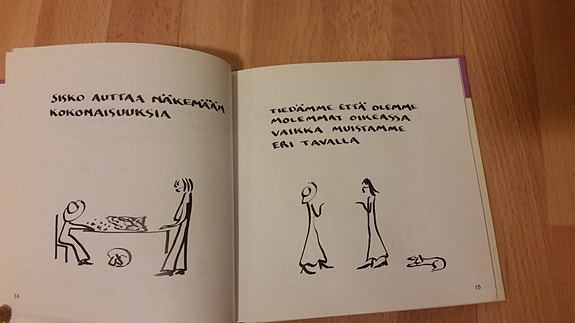 SISKO AUTTAA NÄKEMÄÄN
KOKONAISUUKSIA
14
TIEDÄMME ETTÄ OLEMME
MOLEMMAT OIKEASSA
VAIKKA MUISTAMME
ERI TAVALLA
15